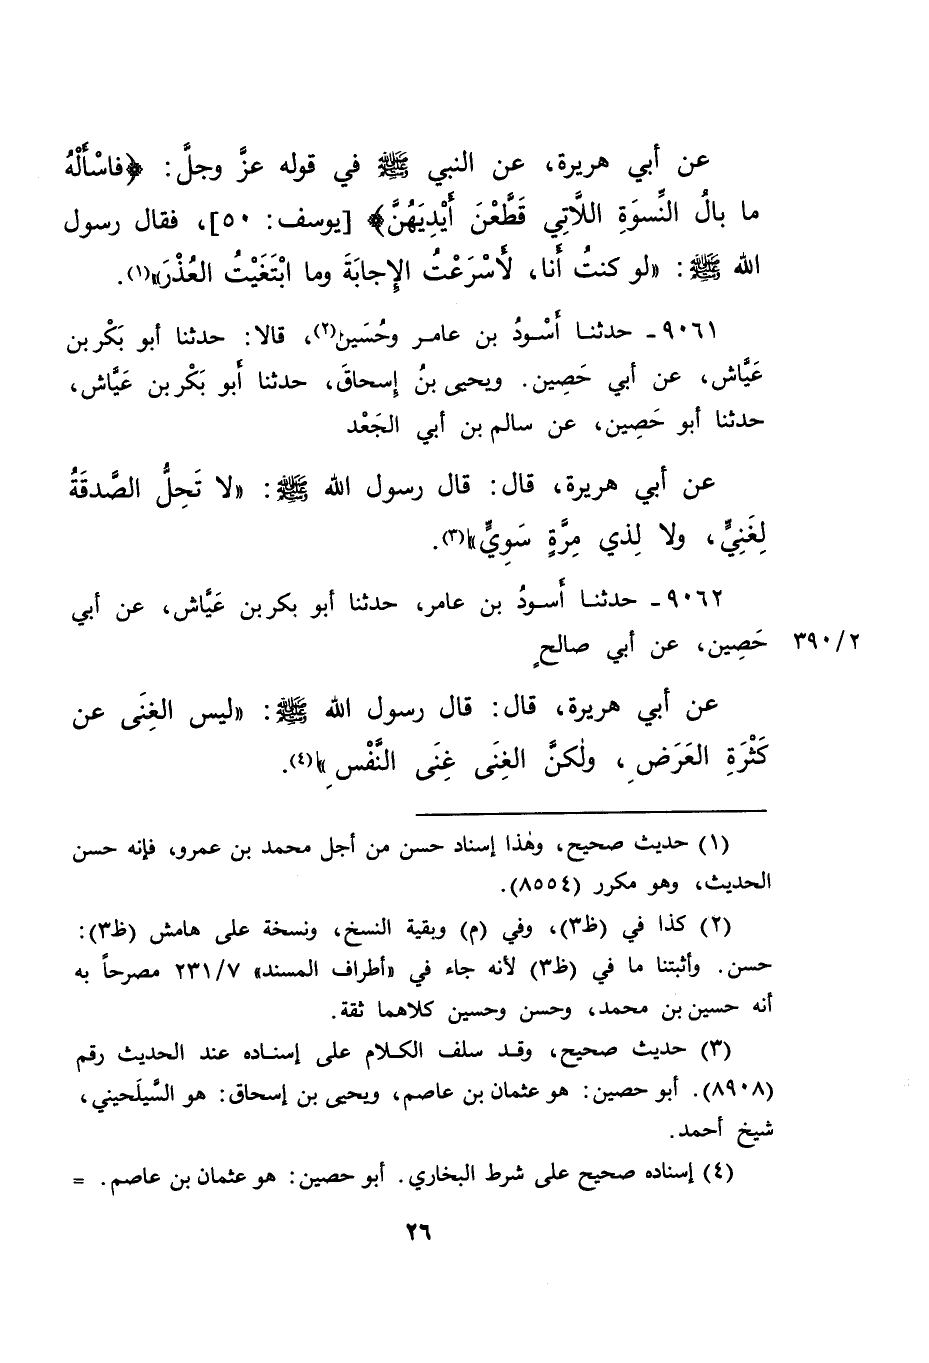 عن أبي هريرة، عن النبي ﷺ في قوله عزَّ وجلَّ: ﴿فاسْأَلْهُ
ما بالُ النِّسوَةِ اللَّاتي قَطَّعْنَ أَيْدِيَهُنَّ﴾ [يوسف: ٥٠]، فقال رسول
الله ﷺ: «لو كنتُ أنا، لَأَسْرَعْتُ الإِجابَةَ وما ابْتَغَيْتُ العُذْرَ»(١).
٩٠٦١ـ حدثنا أَسْودُ بن عامر وحُسَين(٢)، قالا: حدثنا أبو بَكْر بن
عَيَّاش، عن أبي حَصِين. ويحيى بنُ إسحاقَ، حدثنا أَبو بَكْر بن عَيَّاش،
حدثنا أبو حَصِين، عن سالم بن أبي الجَعْد
عن أبي هريرة، قال: قال رسول الله ﷺ: «لا تَحِلُّ الصَّدقَةُ
لِغَنِيٍّ، ولا لِذي مِرَّةٍ سَوِيٍّ»(٣).
٩٠٦٢ـ حدثنا أَسودُ بن عامر، حدثنا أبو بكر بن عَيَّاش، عن أبي
حَصِين، عن أبي صالحٍ ٣٩٠/٢
عن أبي هريرة، قال: قال رسول الله ﷺ: «ليس الغِنَى عن
كَثْرَةِ العَرَضِ، ولٰكنَّ الغِنَى غِنَى النَّفْسِ»(٤).
(١) حديث صحيح، وهٰذا إسناد حسن من أجل محمد بن عمرو، فإنه حسن
الحديث، وهو مكرر (٨٥٥٤).
(٢) كذا في (ظ٣)، وفي (م) وبقية النسخ، ونسخة على هامش (ظ٣):
حسن. وأثبتنا ما في (ظ٣) لأنه جاء في «أطراف المسند» ٢٣١/٧ مصرحاً به
أنه حسين بن محمد، وحسن وحسين كلاهما ثقة.
(٣) حديث صحيح، وقد سلف الكلام على إسناده عند الحديث رقم
(٨٩٠٨). أبو حصين: هو عثمان بن عاصم، ويحيى بن إسحاق: هو السَّيلَحيني،
شيخ أحمد.
(٤) إسناده صحيح على شرط البخاري. أبو حصين: هو عثمان بن عاصم. =
٢٦